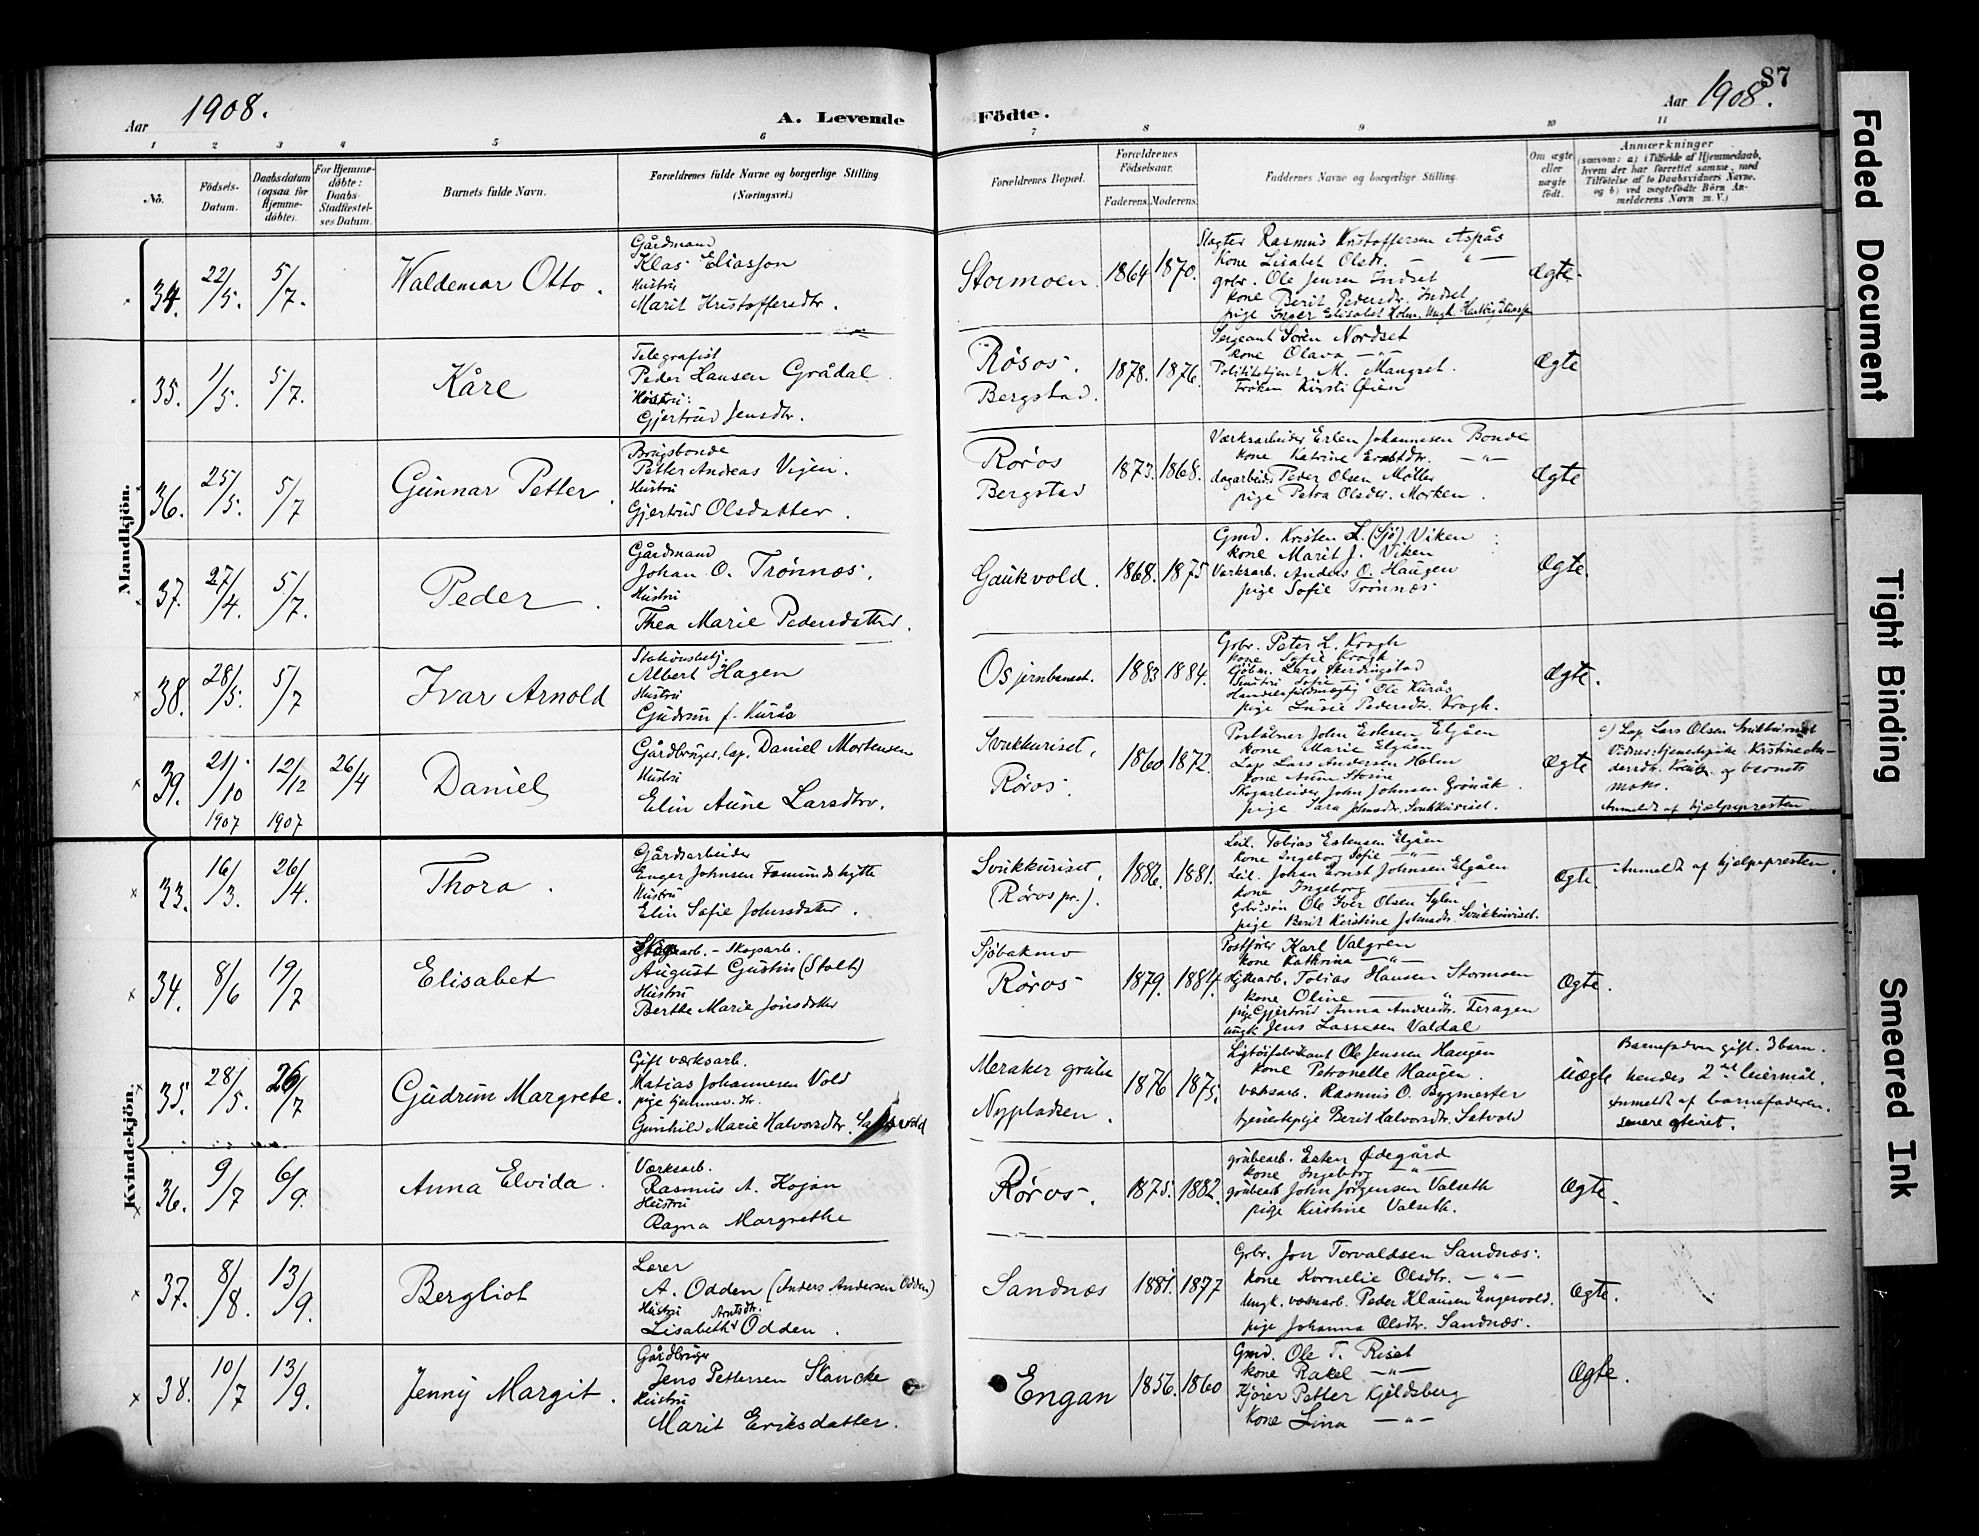 87
Aar 1908.
A. Levende
Födte.
Aar 1908.
1 2 3 4 5 6 7 8 9 10 11
No.
Födsels-Datum.
Daabsdatum (ogsaa for Hjemmedöbte).
For Hjemmedöbte: Daabs-Stadfæstelses Datum.
Barnets fulde Navn.
Forældrenes fulde Navne og borgerlige Stilling
(Næringsvei.)
Forældrenes Bopæl.
Forældrenes Födselsaar.
Faderens. Moderens.
Faddernes Navne og borgerlige Stilling.
Om ægte eller uægte födt.
Anmærkninger
(saasom: a) i Tilfælde af Hjemmedaab, hvem der har forrettet samme, med Tilföielse af to Daabsvidners Navne, og b) ved uægtefödte Börn Anmelderens Navn m. V.)
Mandkjön.
34. 22/5. 5/7. Waldemar Otto.
Gårdmand
Klas Eliasson
Hustru
Marit Kristoffersdtr.
Stormoen. 1864 1870.
Slagter Rasmus Kristoffersen Aspås
Kone Lisabet Olsdr. — " —
grbr. Ole Jensen Indset
kone Berit Pedersdr. Indset
pige Inger Elisabet Holm.
Ægte.
35. 1/5. 5/7. Kåre
Telegrafist
Peder Hansen Grådal
Hustru:
Gjertrud Jensdtr.
Røros
Bergstad. 1878. 1876.
Sergeant Sören Nordset
kone Olava — " —
Frøken Kirsti Øien
Ægte
36. 25/5. 5/7 Gunnar Petter
Brugsbonde
Petter Andreas Vigen.
Hustru
Gjertrud Olsdatter.
Røros
Bergstad 1873. 1868.
Værksarbeider Esten Johannesen Bonde
kone Katrine — " —
dagarbeid. Peder Olsen Møller
pige Petra Olsdr. Morken.
Ægte
37. 27/4. 5/7. Peder.
Gårdmand
Johan O. Trønnes.
Hustru
Thea Marie Pedersdatter.
Gaukvold. 1868. 1875
Gmd. Kristen L. (Sjö) Viken
kone Marit J. Viken
Værksarb. Anders O. Haugen
pige Sofie Trønnes
Ægte.
38. 28/5. 5/7 Ivar Arnold
Stationsbetj.
Albert Hagen
Hustru
Gudrun f. Kurås
Os jernbanest. 1883 1884.
Grbr. Peter L. Krogh
kone Sofie Krogh
Hustru Sofie
Handelsfuldmægtig Ole Kurås
pige Lusie Pedersdr. Krogh.
Ægte.
39. 21/10 1907 12/12 1907 26/4 Daniel
Gårdbruger, lap. Daniel Mortensen
Hustru
Elin Anne Larsdtr.
Svukkuriset,
Røros. 1860 1872.
Poståbner John Estesen Elgåen
kone Marie Elgåen
Lap Lars Andersen Holm
kone Anne Storm
Skogarbeider John Johnsen Grönåk.
pige Sara Johnsdr. Svukkuriset.
Ægte
Lap Lars Olsen Svukkuriset
Vidner: tjenestepike Kristine Andersdr. og barnets
mor.
Anmeldt af hjælpepresten
Kvindekjön.
33. 16/3. 26/4. Thora.
Gårdsarbeider
Enger Johnsen Fæmundshytte
Hustru
Elin Sofie Johnsdatter.
Svukkuriset,
(Røros pr.). 1886. 1881.
Leil. Tobias Estensen Elgåen
kone Ingeborg Sofie — " —
Leil. Johan Ernst Johnsen Elgåen
kone Ingeborg
Grbr.søn Ole Iver Olsen Sylen
pige Berit Kirstine Johnsdtr. Svukkuriset.
Ægte.
Anmeldt af hjelpepresten.
34. 8/6 19/7 Elisabet
Skogsarb.
August Gustin (Stolt)
Hustru
Berthe Marie Jonsdatter
Sjöbakmo
Røros 1879. 1884.
Postfører Karl Valgren
kone Kathrina — " —
Hyttearb. Tobias Hansen Stormoen
kone Oline — " —
pige Gjertrud Anna Andersdtr. Feragen
ungk. Jens Lassesen Valdal
Ægte.
35. 28/5. 26/7 Gudrun Margrete.
Gift værksarb.
Matias Johannesen Vold
pige hjemmev. dtr.
Gunhild Marie Halvorsdtr. Satvold
Meraker grube
Nypladsen. 1876 1875.
Ligtøifabrikant Ole Jenssen Haugen
kone Petronelle Haugen.
værksarb. Rasmus O. Bygmester
tjenestepige Berit Halvorsdtr. Satvold
Uægte
Barnefaderen gift. 3 barn.
hendes 2det leiermål.
Anmeldt af barnefaderen.
36. 9/7 6/9. Anna Elvida.
Værksarb.
Rasmus A. Kojan
Hustru
Ragna Margrethe
Røros. 1875. 1882.
grubearb. Esten Ødegård
kone Ingeborg — " —
grubearb John Jörgensen Valseth
pige Kirstine Valseth.
Ægte.
37. 8/8. 13/9. Bergliot
Lærer
A. Odden (Anders Andersen Odden)
Hustru Arntsdtr.
Lisabeth Odden.
Sandnæs 1881. 1877
Grbr. Jon Torvaldsen Sandnæs.
kone Kornelie Olsdtr. — " —
Ungk. værksarb. Peder Klausen Engesvold.
pige Johanna Olsdtr. Sandnæs.
Ægte.
38. 10/7 13/9. Jenny Margit.
Gårdbruger
Jens Pettersen Skancke
Hustru
Marit Eriksdatter.
Engan 1856. 1860
Gmd. Ole T. Riset
kone Rakel — " —
Kjører Petter Kjeldsberg
Kone Lina — " —
Ægte.
Faded Document
Tight Binding
Smeared Ink